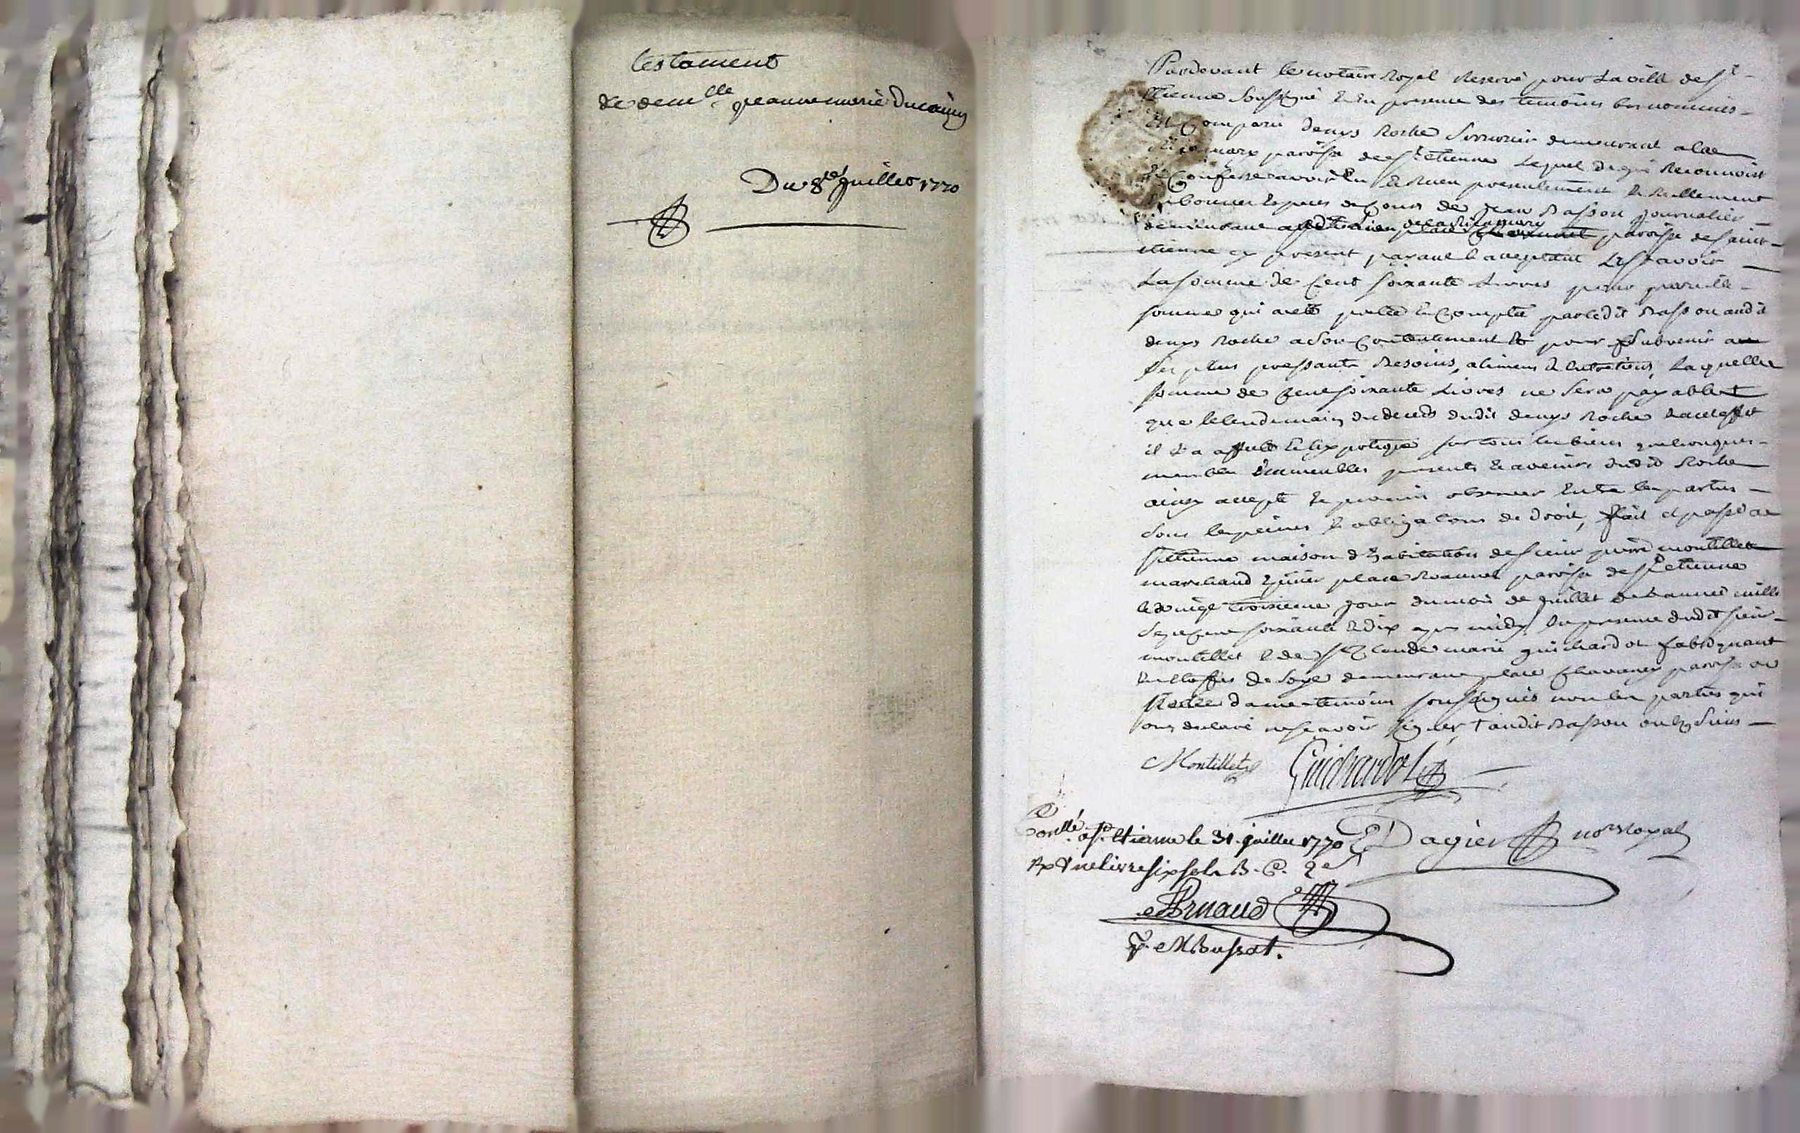 testament
de demlle jeanne marie
Du 8e juillet 1770
Pardevant le notaire Royal Reservé pour la ville de St
Etienne soussigné & en presence des temoins bas nommés
Est Comparu denys Roche demeurant a la
paroisse de St etienne lequel de gré Reconnoist
& Confesse avoir Eu & Receu presentement & Reellement
En bonnes Especes de Cours de Jean Basson journalier
demeurant paroisse de saint
etienne cy present & acceptant Esscavoir
La somme de Cent soixante Livres pour pareille
somme qui a eté pretée & Comptée par ledit Basson audit
denys Roche a son Contentement & pour subvenir a
ses plus pressants Besoins, alimens & Entretiens Laquelle
somme de Cent soixante Livres ne sera payable
que le lendemain du deceds dudit denys Roche & a cet effet
il l'a affecté & hypotequé sur tous les biens quelconques
meubles & immeubles presents & avenirs dudit Roche
ainsy accepté & promis observer Entre les parties
sous les peines & obligations de droit, fait et passé a
St Etienne maison d'habitation de sieur pierre montillet
marchand place Roannel paroisse de St etienne
le vingt troisieme jour du mois de juillet & L'année mille
sept cent soixante & dix apres midy En presence dudit sieur
montillet & de Sr Claude marie guichardot fabriquant
En Etoffes de soye demeurant place Chavanel paroisse
Nostre dame temoins soussignés non les parties qui
ont declaré ne scavoir signer tandit Basson
Montillet Guichardot
Dagier nore Royal
Conllé a St Etienne le 31 juillet 1770
Rx Une livre six sols
Arnaud